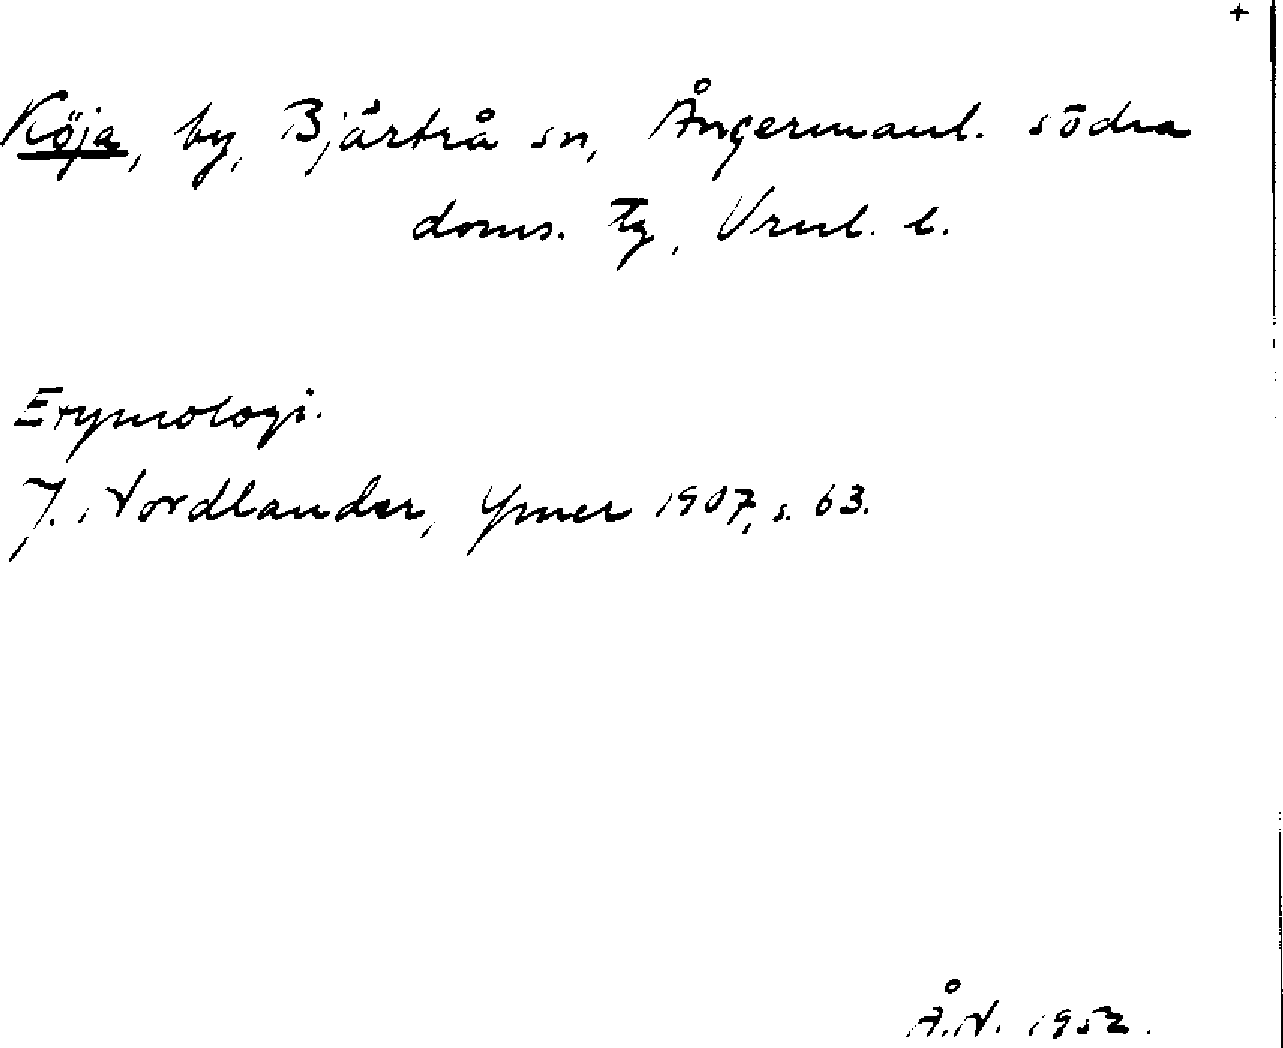 +
Köja, by, Bjärtrå sn, Ångermanl. södra
doms. tg, Vrnl. l.
Etymologi.
J. Nordlander, Ymer 1907, s. 63.
Å.N. 1952.